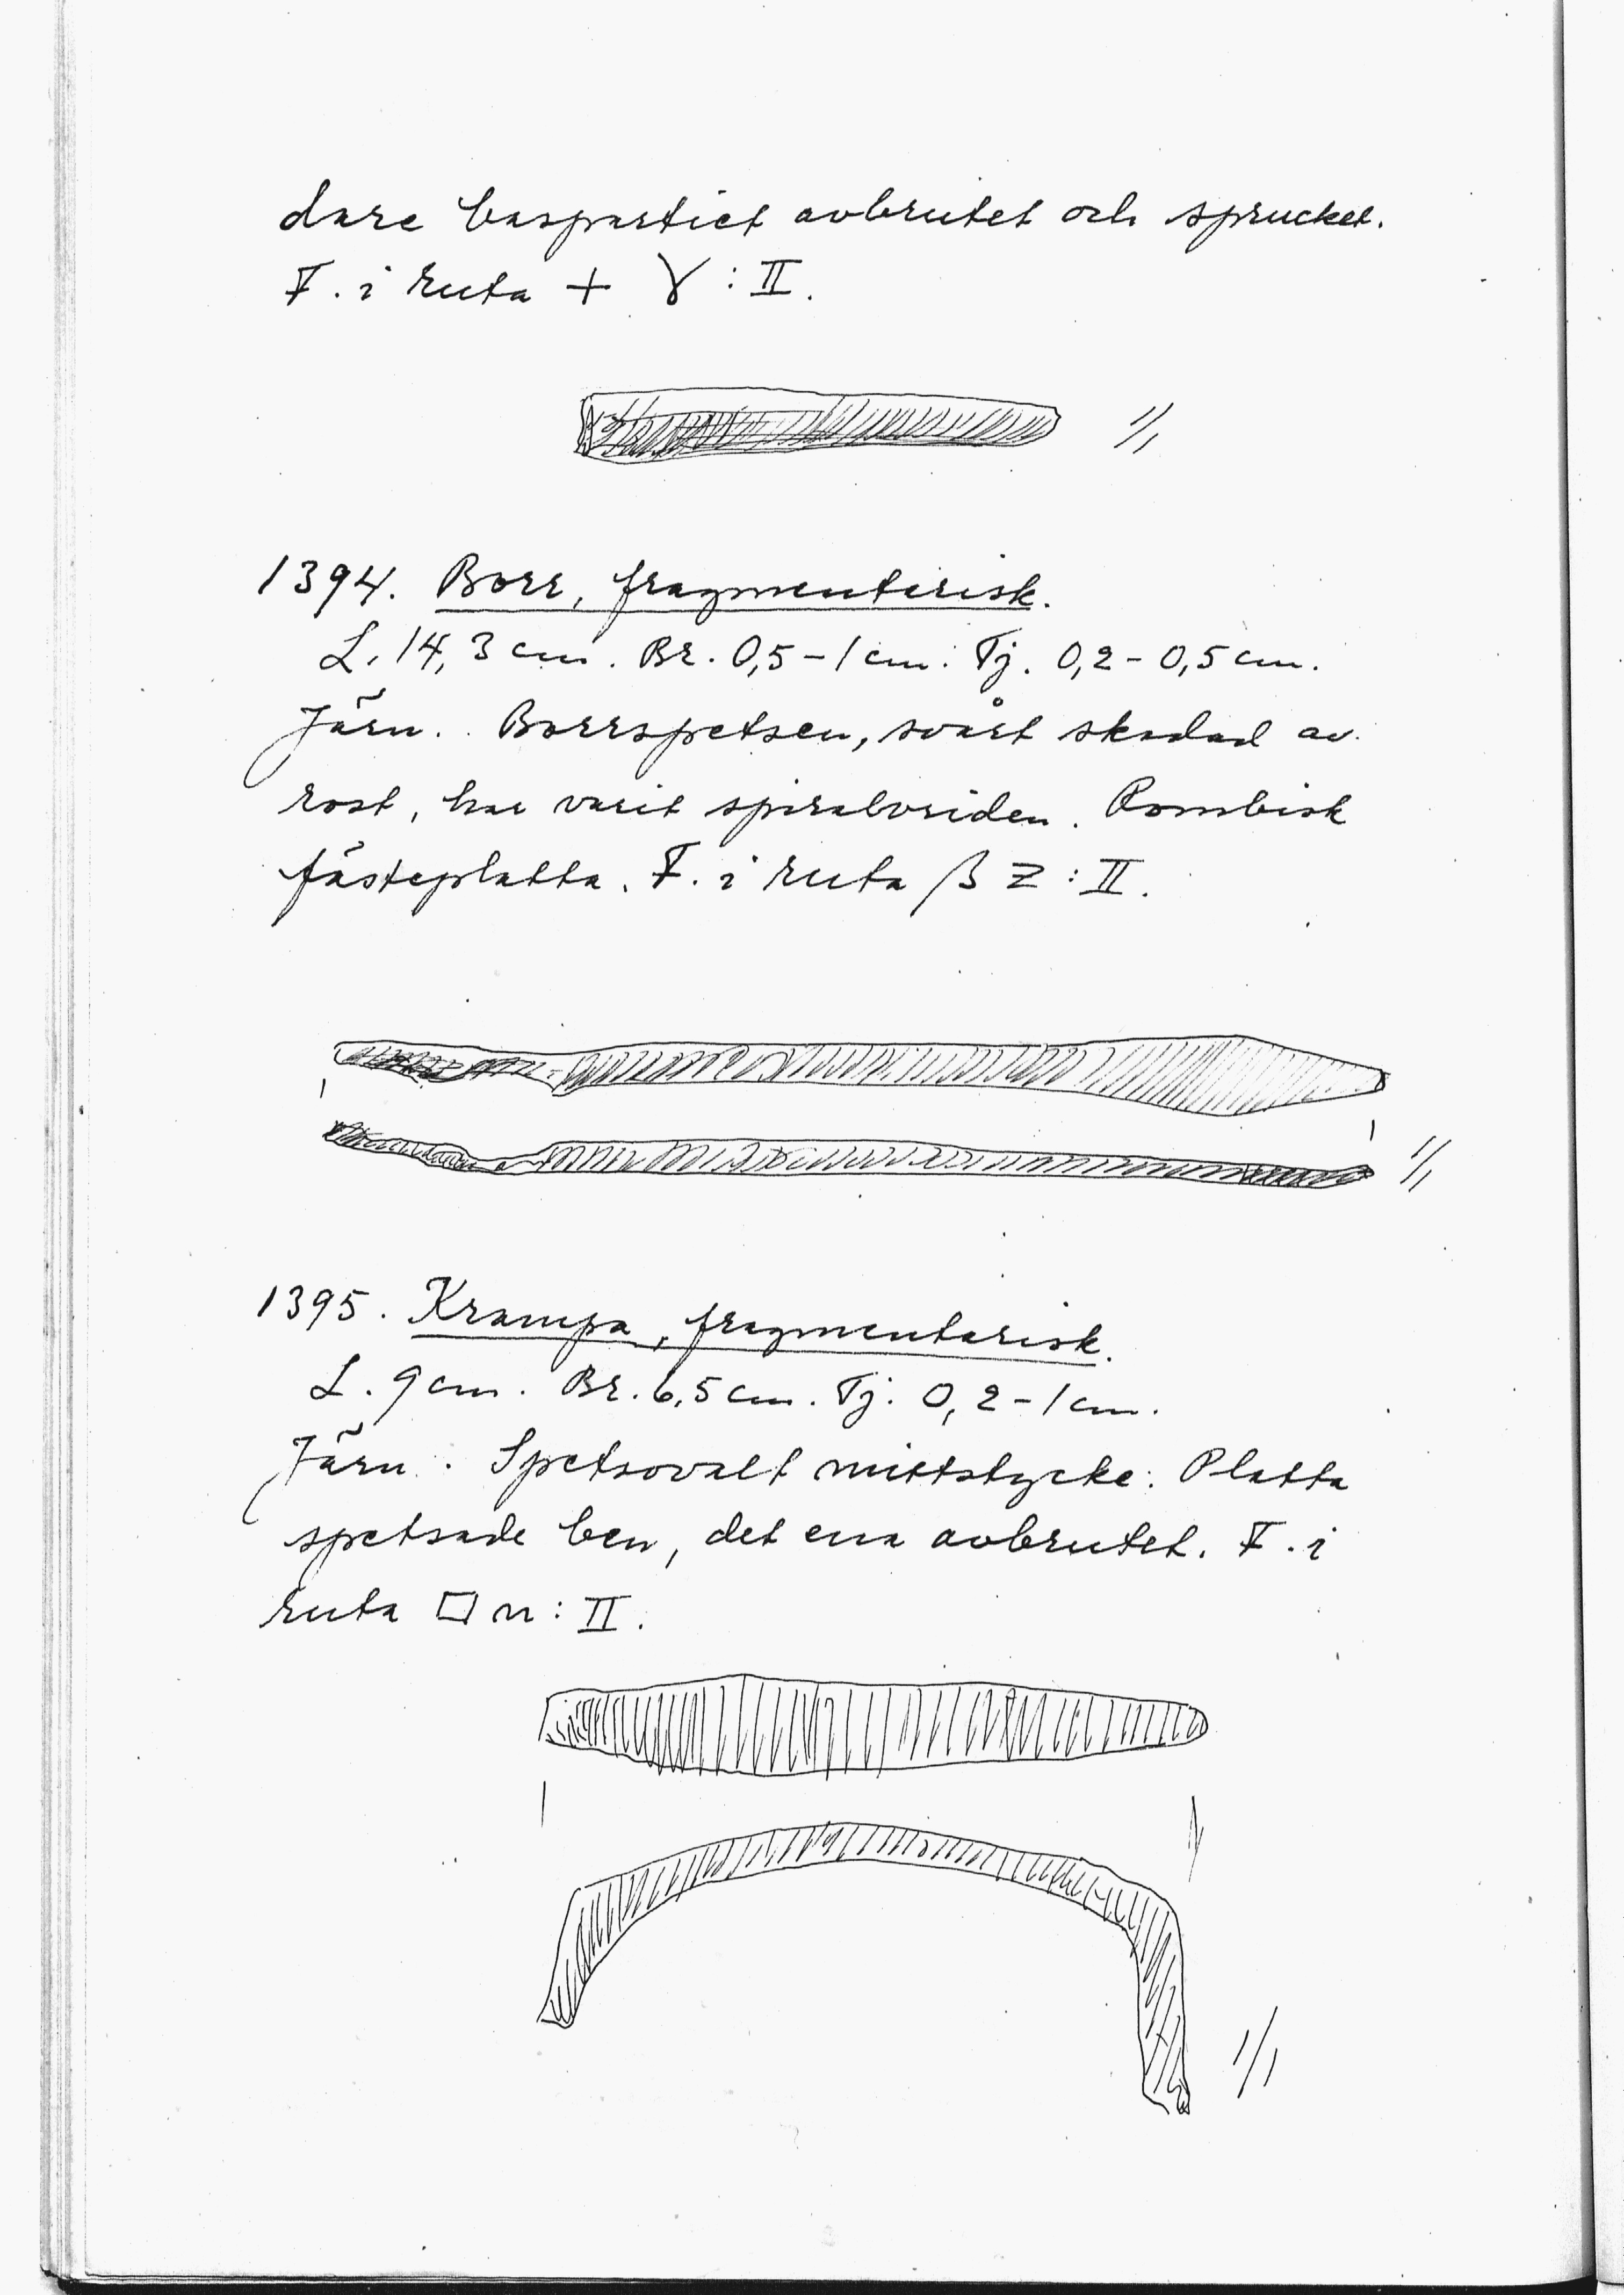 dare baspartiet avbrutet och sprucket.
F. i ruta + γ : II.
1/1
1394. Borr, fragmentarisk.
L. 14,3 cm. Br. 0,5-1 cm. Tj. 0,2-0,5 cm.
Järn. Borrspetsen, svårt skadad av
rost, har varit spiralvriden. Rombisk
fästeplatta. F. i ruta β Z : II.
1/1
1395. Krampa, fragmentarisk.
L. 9 cm. Br. 6,5 cm. Tj. 0,2-1 cm.
Järn. Spetsovalt mittstycke. Platta
spetsade ben, det ena avbrutet. F. i
ruta □ n : II.
1/1